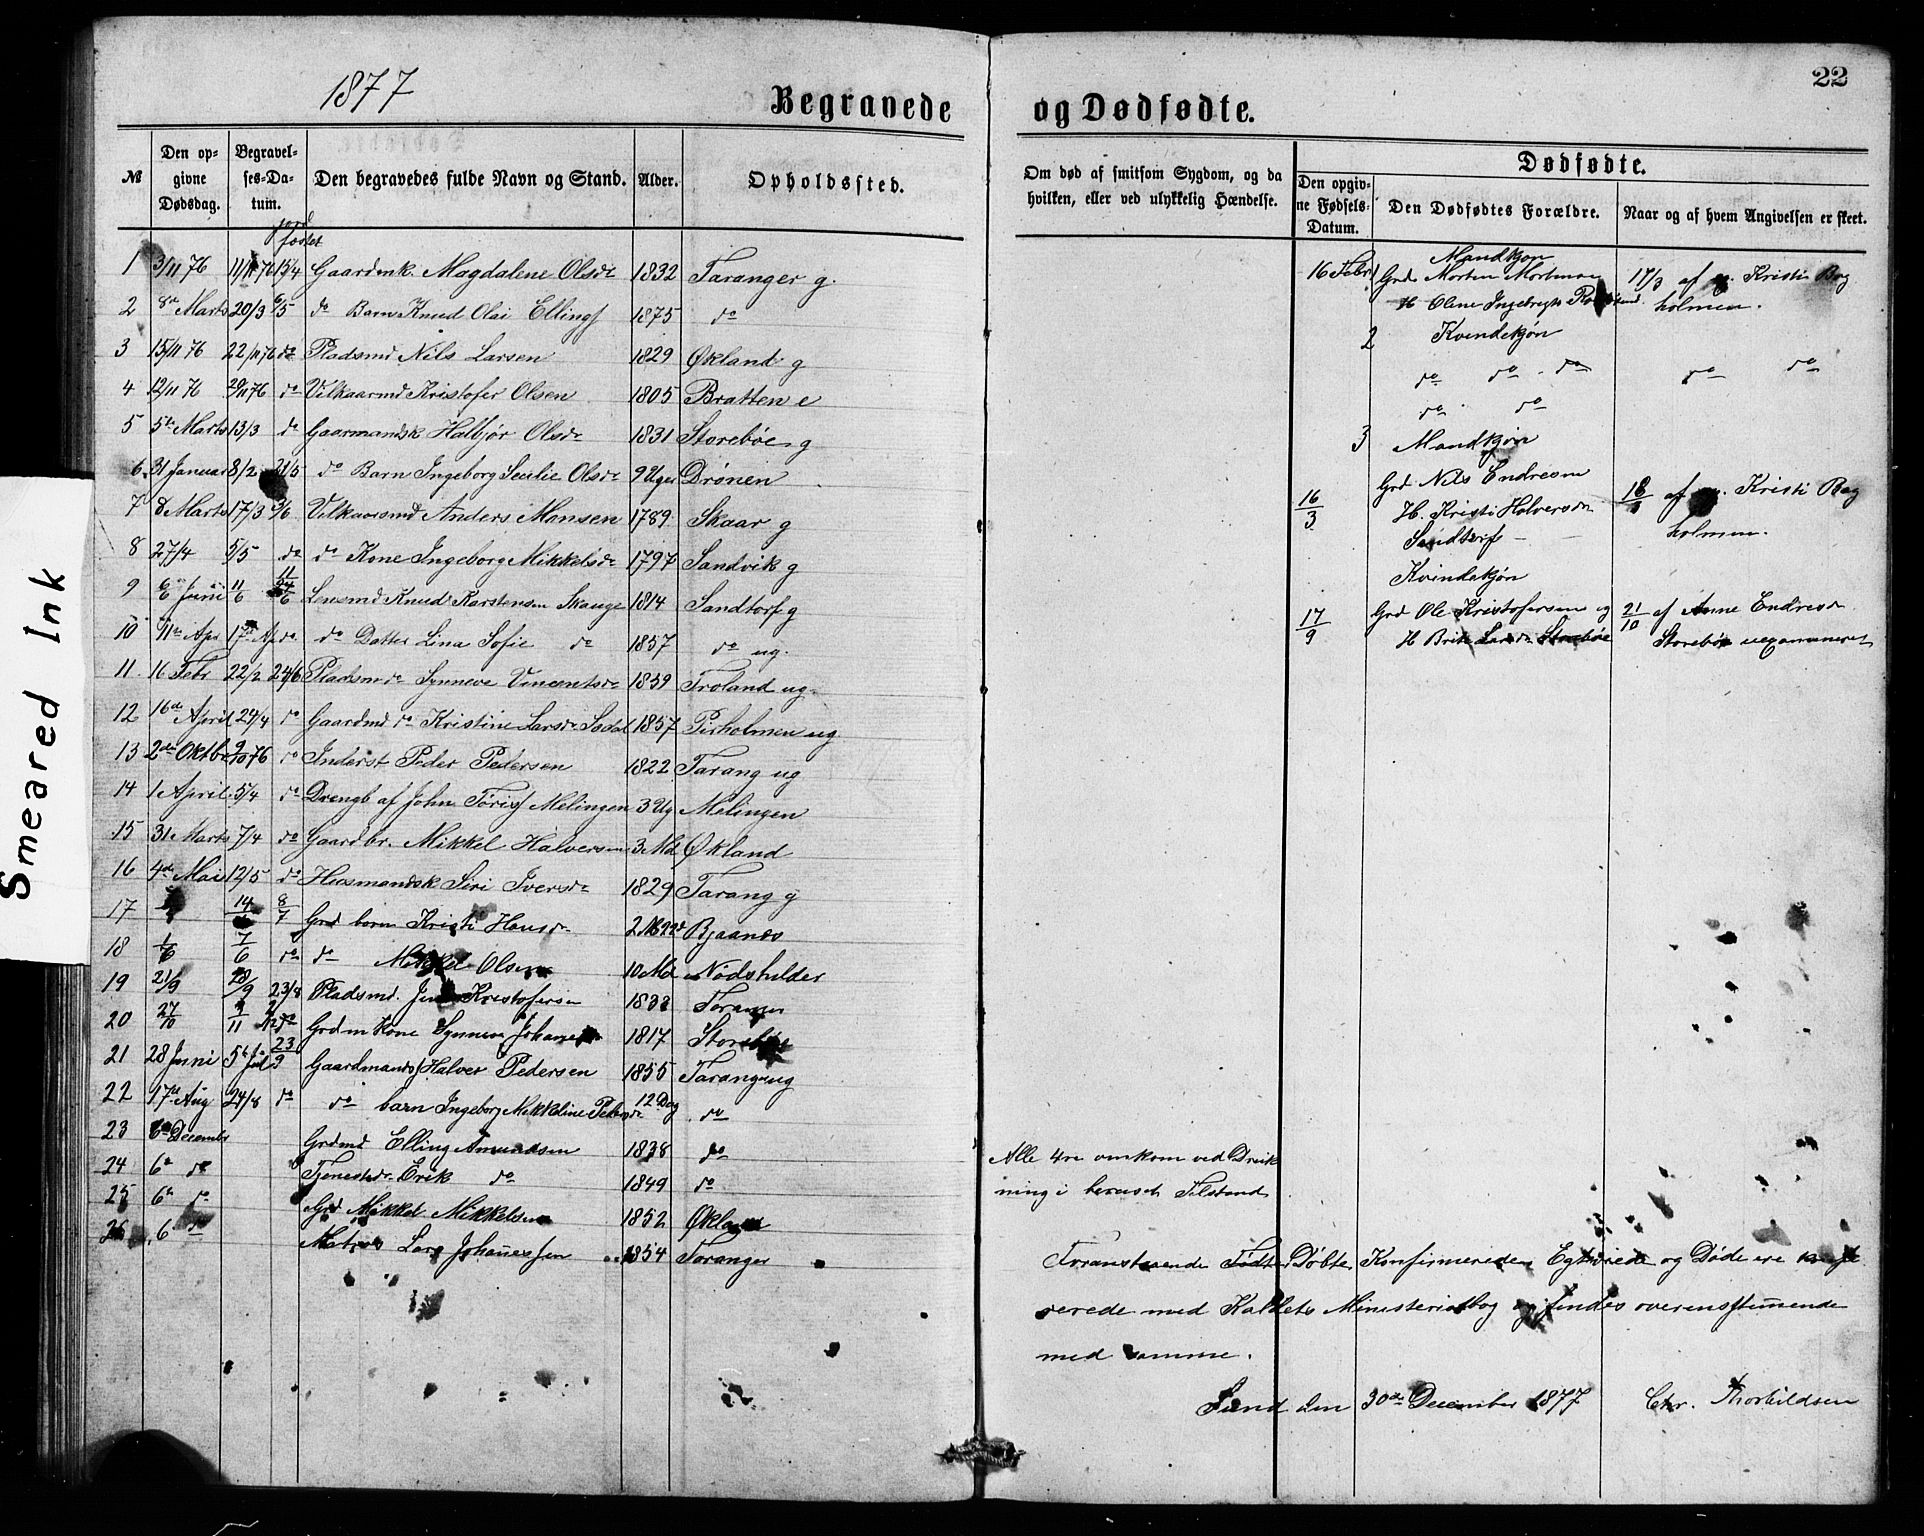 1877
Begravede
og Dødfødte.
22
№
Den opgivne Dødsdag.
Begravelses-Datum.
Den begravedes fulde Navn og Stand.
Alder.
Opholdssted.
jord fæstet
1 3/11 76 11/11 76 15/4 Gaardmk. Magdalene Olsdr 1832 Taranger g.
2 8de Marts 20/3 6/5 do Barn Knud Olai Ellings 1875 do
3 15/11 76 22/11 76 do Pladsmd Nils Larsen 1829 Økland g
4 12/11 76 29/11 76 do Vilkaarmd Kristofer Olsen 1805 Bratten e
5 5te Marts 13/3 do Gaarmandsk Halbjør Olsdr 1831 Storebøe g
6 31 Januar 8/2 21/5 do Barn Ingeborg Secilie Olsdr 9 Uger Drønen
7 8 Marts 17/3 Vilkaarsmd Anders Monsen 1789 Skaar g
8 27/4 5/5 do do Kone Ingeborg Mikkelsdr 1797 Sandvik g
9 6te Juni 11/6 24/6 Lensmd Knud Karstensen Skauge 1814 Sandtorf g
10 11te Apr 17de Ap do do Datter Lina Sofie do 1857 do ug.
11 16 Febr 22/2 24/6 Pladsm do Synneve Vincentsdr 1859 Troland ug.
12 16de April 24/4 do Gaardmd do Kristine Larsdr 1857 Pirholmen ug
13 2den Oktbr 9/10 76 do Inderst Peder Pedersen 1822 Tarang ug
14 1 April 5/4 do Drengb af John Tøris Melingen 3 Ug Melingen
15 31 Marts 7/4 do Gaard br. Mikkel Halversen 3 Md Økland
16 4de Mai 12/5 do Husmandsk Siri Iversdr 1829 Tarang g
17 14 8/7 Grd barn Kristi Hansdr 2 M Bjaanæs
18 1/6 7/6 do do Mikkel Olsen 10 Md Nødshilder
19 21/9 28/9 23/8 Pladsmd. Kristofersen Toranger
20 27/10 11 do Grdm Kone Synneve 1817 Storebøe
21 28 Juni 5te Jul 23/9 Gaardmands Halver Pedersen 1855 Tarang ug
22 17de Aug 24/8 do do barn Ingeborg Mikkeline Pedersdr 12 Dag do
23 6te Decembr Grdmd Elling Amundsen 1838 do
24 6te do Tjenestedr Erik do 1849 do
25 6te do Grd Mikkel Mikkelsen 1852 Økland
26 6 do Matros Lars Johannessen 1854 Toranger
Om død af smitsom Sygdom, og da hvilken, eller ved ulykkelig Hændelse.
Dødfødte.
Den opgivne Fødsels-Datum.
Den Dødfødtes Forældre.
Naar og af hvem Angivelsen er skeet.
1 Mandkjøn
16 Febr Grd Morten Mortensen 17/3 af Kristi Bag
H Oline Ingebregts holmen.
2 Kvindekjøn
do do do do do
do do
3 Mandkjøn
16/3 Grd Nils Endresen 18 af Kristi Bag
H. Kristi Halversdr holmen.
Sandtorf
Kvindekjøn
17/9 Grd Ole Kristofersen og 21/10 af Anne Endresdr
H Brite Larsdr Storebøe Storebøe uexamineret
Alle 4re omkom ved Druk
ning i beruset Tilstand
Foranstaaende Fødte Døbte Konfirmerede Egteviede og Døde ere konfe
rerede med Kaldets Ministerialbog og findes overensstemmende
med samme.
Sund den 30de December 1877 Chr. Thorkildsen
Smeared Ink